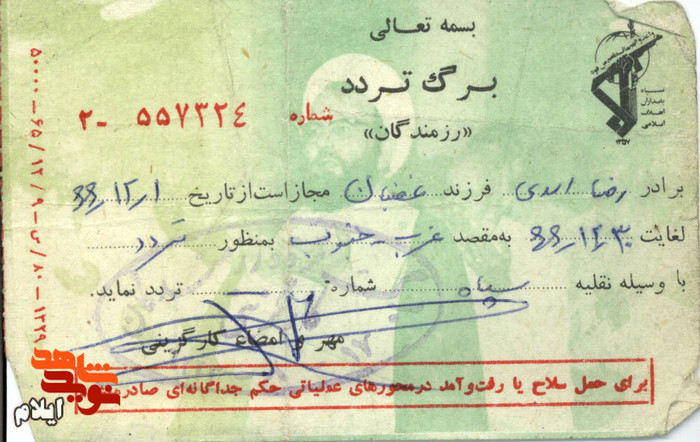 بسمه تعالی
برگ تردد
شماره ۵۵۷۳۲٤ -۲
«رزمندگان»
سپاه
پاسداران
انقلاب
اسلامی
۱۳۵۷
برادر رضا اسدی فرزند مجاز است از تاریخ ۱/۱۲/
لغایت ۳۰/۱۲/ به مقصد غرب - جنوب بمنظور تردد
با وسیله نقلیه سپاه شماره تردد نماید.
مهر و امضاء کارگزینی
برای حمل سلاح یا رفت و آمد در محورهای عملیاتی حکم جداگانه‌ای صادر
۵۰۰۰۰ – ۶۵/۱۲/۹ – ی/۸۰ – ۱۲۲۹
شاهد
نوید
ایلام